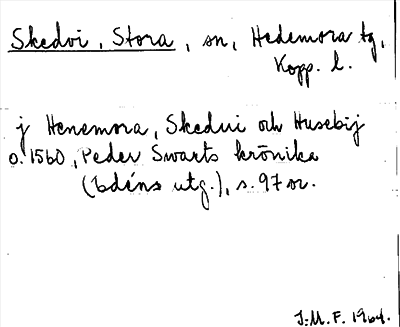 Skedvi, Stora, sn, Hedemora tg,
Kopp. l.
j Henemora, Skedui och Husebij
o. 1560, Peder Swarts krönika
(Edéns utg.), s. 97 or.
J.M.F. 1964.